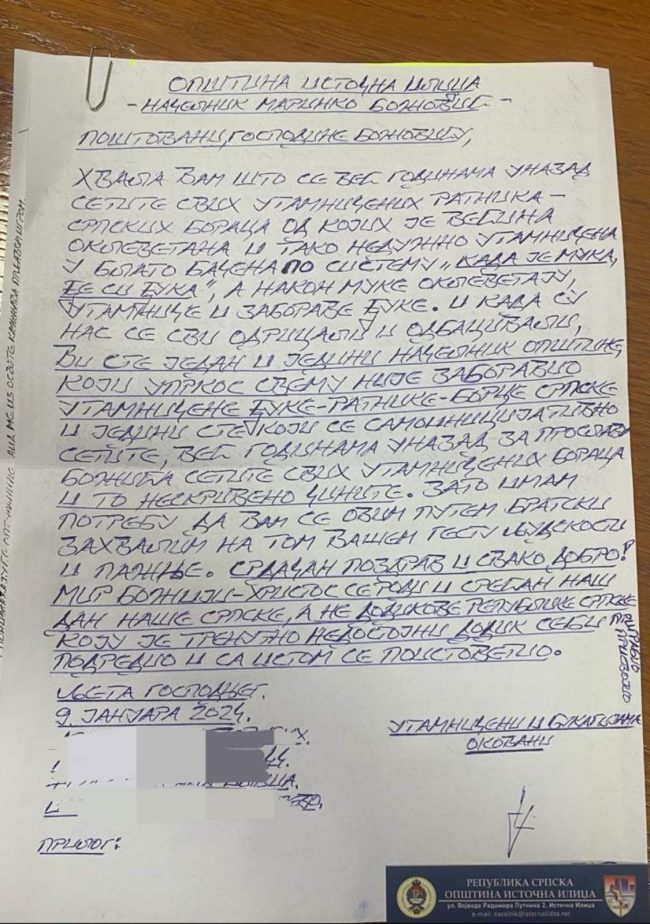 ОПШТИНА ИСТОЧНА ИЛИЏА
- НАЧЕЛНИК МАРИНКО БОЖОВИЋ -
ПОШТОВАНИ, ГОСПОДИНЕ БОЖОВИЋУ,
ХВАЛА ВАМ ШТО СЕ ВЕЋ ГОДИНАМА УНАЗАД
СЕТИТЕ СВИХ УТАМНИЧЕНИХ РАТНИКА –
СРПСКИХ БОРАЦА ОД КОЈИХ ЈЕ ВЕЋИНА
ОКЛЕВЕТАНА И ТАКО НЕДУЖНО УТАМНИЧЕНА
У БЛАТО БАЧЕНА ПО СИСТЕМУ „КАДА ЈЕ МУКА,
ЂЕ СИ ЂУКА", А НАКОН МУКЕ ОКЛЕВЕТАЈУ,
УТАМНИЧЕ И ЗАБОРАВЕ ЂУКЕ. И КАДА СУ
НАС СЕ СВИ ОДРИЦАЛИ И ОДБАЦИВАЛИ,
ВИ СТЕ ЈЕДАН И ЈЕДИНИ НАЧЕЛНИК ОПШТИНЕ,
КОЈИ УПРКОС СВЕМУ НИЈЕ ЗАБОРАВИО
УТАМНИЧЕНЕ ЂУКЕ-РАТНИКЕ-БОРЦЕ СРПСКЕ
И ЈЕДИНИ СТЕ КОЈИ СЕ САМОИНИЦИЈАТИВНО
СЕТИТЕ, ВЕЋ ГОДИНАМА УНАЗАД ЗА ПРОСЛАВУ
БОЖИЋА СЕТИТЕ СВИХ УТАМНИЧЕНИХ БОРАЦА
И ТО НЕСКРИВЕНО ЧИНИТЕ. ЗАТО ИМАМ
ПОТРЕБУ ДА ВАМ СЕ ОВИМ ПУТЕМ БРАТСКИ
ЗАХВАЛИМ НА ТОМ ВАШЕМ ГЕСТУ ЉУДСКОСТИ
И ПАЖЊЕ. СРДАЧАН ПОЗДРАВ И СВАКО ДОБРО!
МИР БОЖИЈИ-ХРИСТОС СЕ РОДИ И СРЕЋАН НАШ
ДАН НАШЕ СРПСКЕ, А НЕ ДОДИКОВЕ РЕПУБЛИКЕ СРПСКЕ
КОЈУ ЈЕ ТРЕНУТНО НЕДОСТОЈНИ ДОДИК СЕБИ
ПОДРЕДИО И СА ИСТОМ СЕ ПОИСТОВЕТИО.
ЉЕТА ГОСПОДЊЕГ.
9. ЈАНУАРА 2024.
УТАМНИЧЕНИ И БУКАГИЈАМА
ОКОВАНИ
ПРИЛОГ:
РЕПУБЛИКА СРПСКА
ОПШТИНА ИСТОЧНА ИЛИЏА
ул. Војводе Радомира Путника 2, Источна Илиџа
e-mail: nacelnik@istocnailidza.net